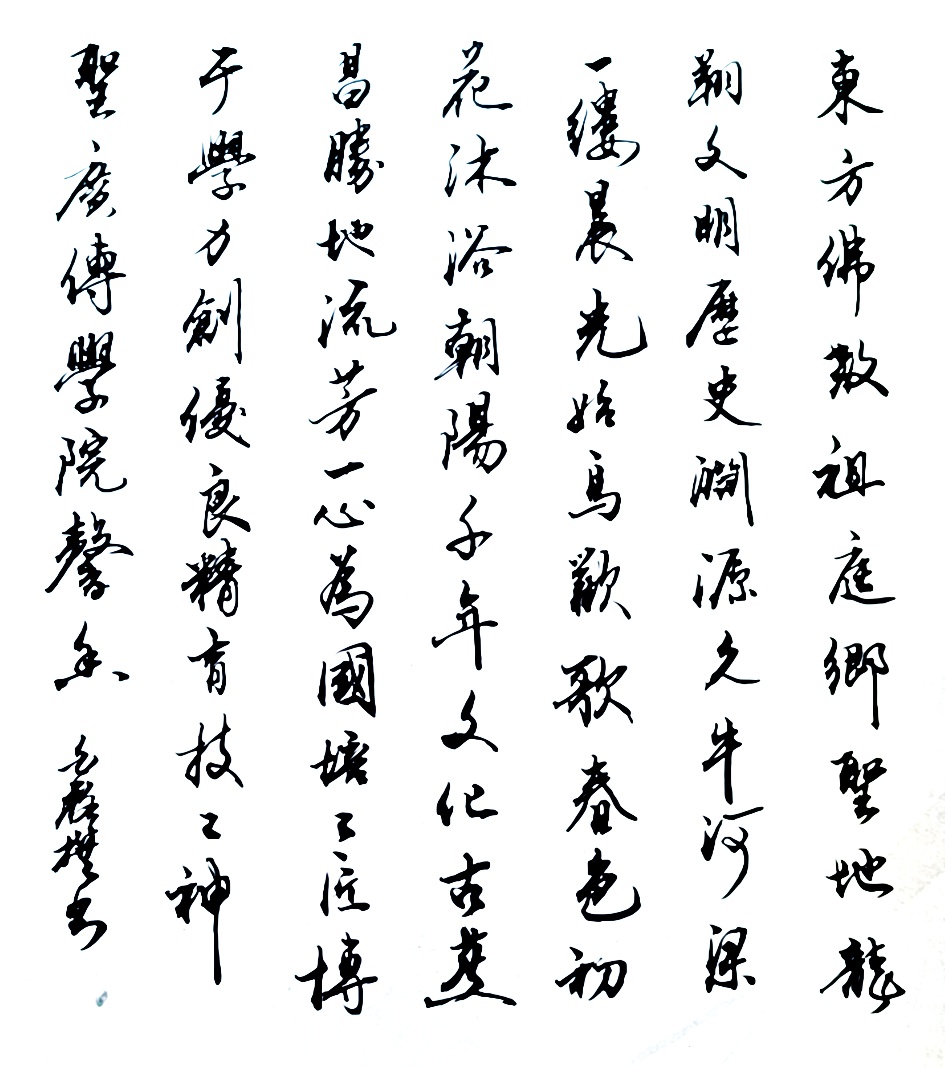 東方佛教祖庭鄉聖地龍
翔文明歷史淵源久牛河梁
一縷晨光始鳥歡歌春色初
花沐浴朝陽千年文化古燕
昌勝地流芳一心為國培工匠博
于學力創優良精育技工神
聖廣傳學院馨香 書